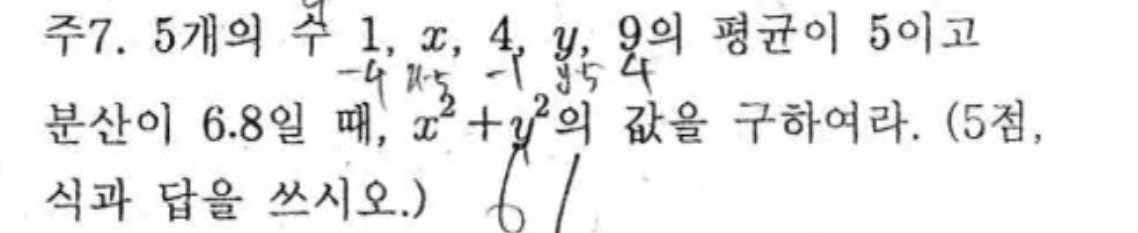 주7. 5개의 수 1, x, 4, y, 9의 평균이 5이고
-4 x-5 -1 y-5 4
분산이 6.8일 때, x²+y²의 값을 구하여라. (5점,
식과 답을 쓰시오.)
61